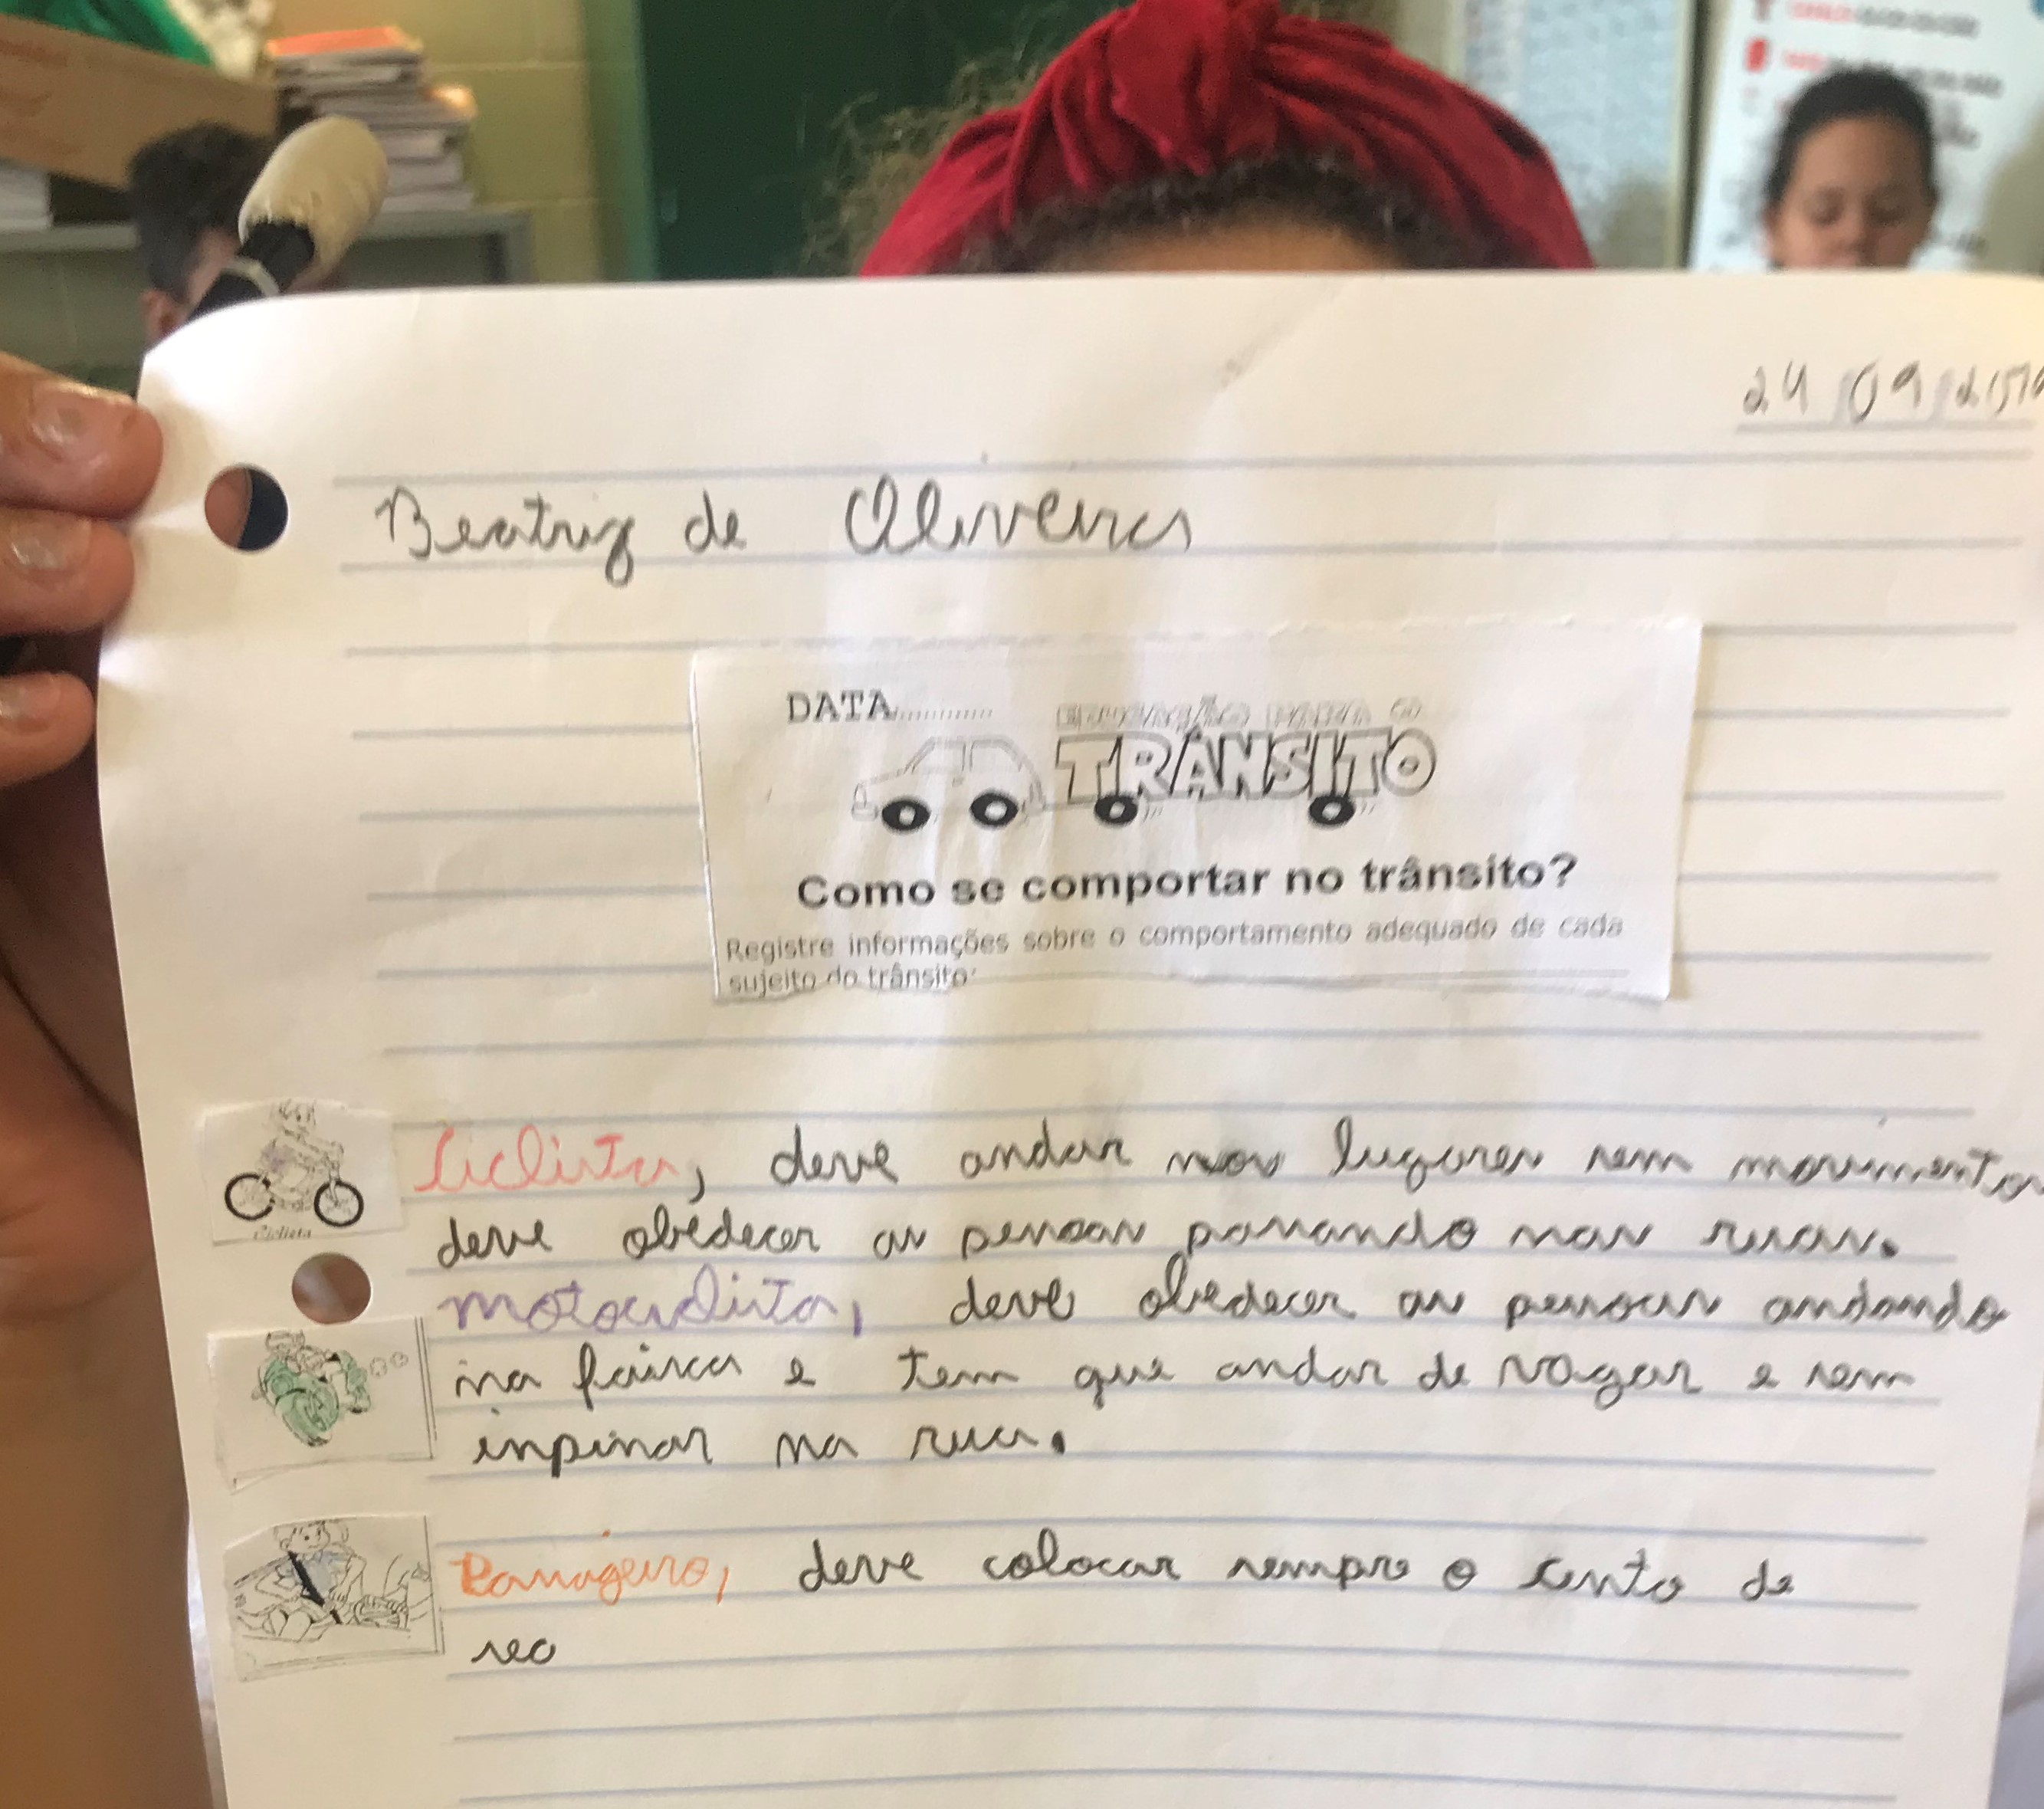 24/09/
Beatriz de Oliveira
DATA............
EDUCAÇÃO PARA O
TRÂNSITO
Como se comportar no trânsito?
Registre informações sobre o comportamento adequado de cada
sujeito do trânsito:
Ciclista, deve andar nos lugares sem movimento
Ciclista
deve obedecer as pessoas passando nas ruas.
motociclista, deve obedecer as pessoas andando
na faixa e tem que andar de vagar e sem
inpinar na rua.
Passageiro, deve colocar sempre o cinto de
seo